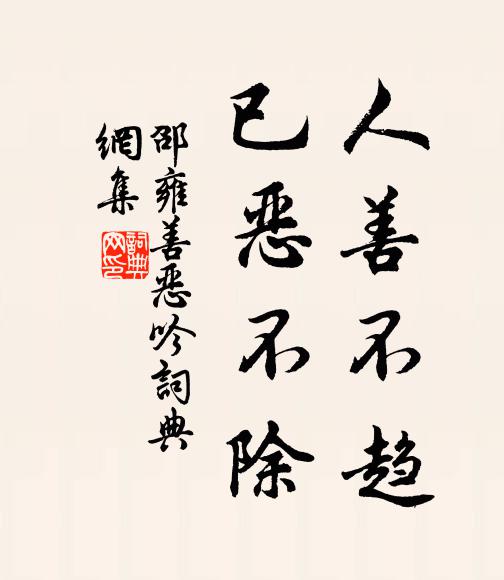 人善不趋
已恶不除
邵雍善恶吟詞典
網集
詞典
网印